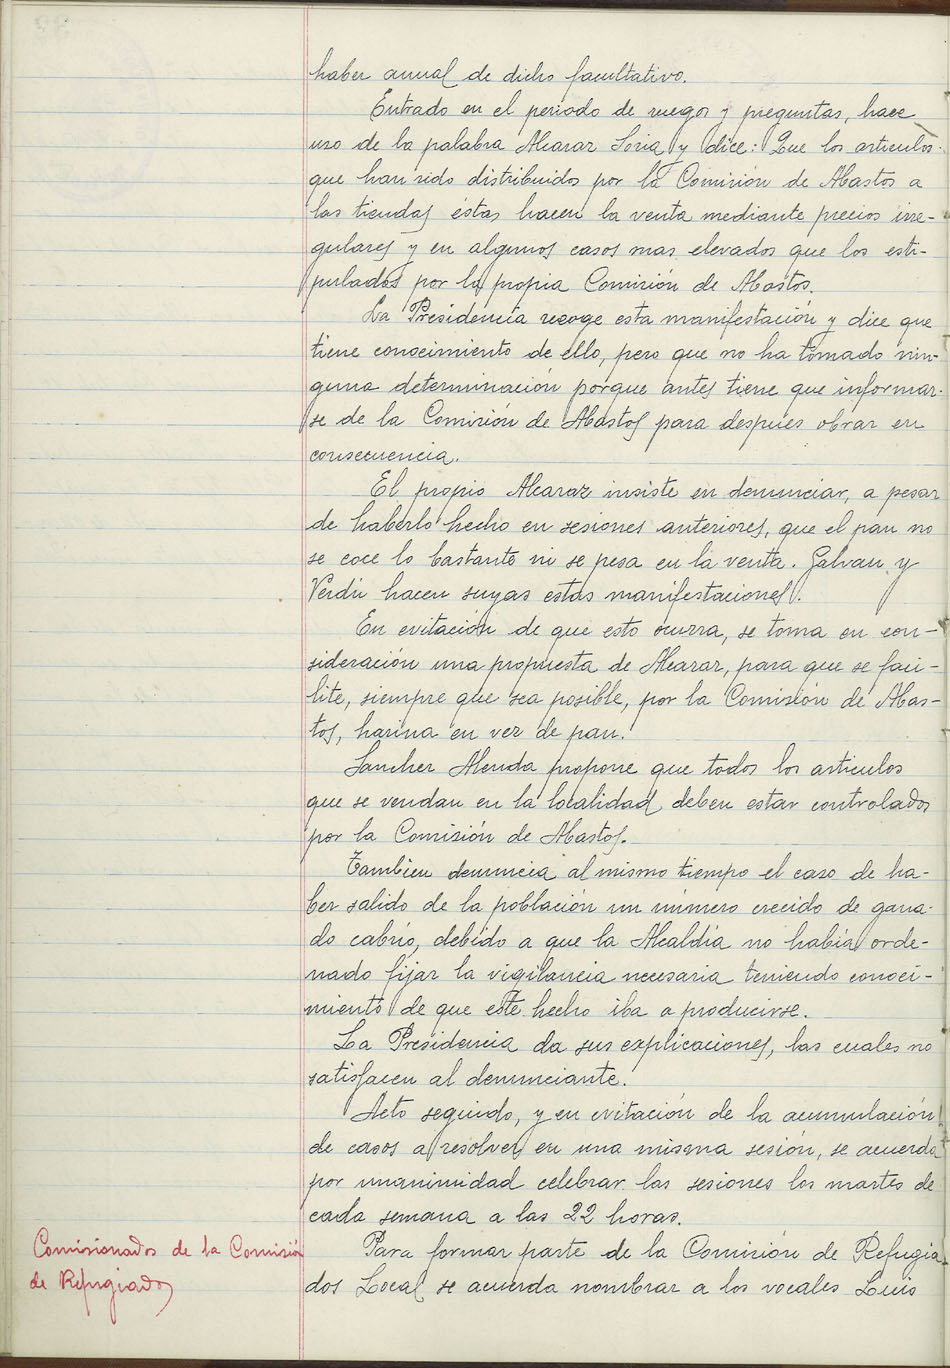 haber anual de dicho facultativo.
Entrado en el periodo de ruegos y preguntas, hace
uso de la palabra Alcaraz Soria y dice: Que los articulos
que han sido distribuidos por la Comisión de Abastos a
las tiendas éstas hacen la venta mediante precios irre-
gulares y en algunos casos mas elevados que los esti-
pulados por la propia Comisión de Abastos.
La Presidencia recoge esta manifestación y dice que
tiene conocimiento de ello, pero que no ha tomado nin-
guna determinación porque antes tiene que informar-
se de la Comisión de Abastos para despues obrar en
consecuencia.
El propio Alcaraz insiste en denunciar, a pesar
de haberlo hecho en sesiones anteriores, que el pan no
se coce lo bastante ni se pesa en la venta. Galvan y
Verdú hacen suyas estas manifestaciones.
En evitación de que esto ocurra, se toma en con-
sideración una propuesta de Alcaraz, para que se faci-
lite, siempre que sea posible, por la Comisión de Abas-
tos, harina en vez de pan.
Sanchez Alenda propone que todos los articulos
que se vendan en la localidad deben estar controlados
por la Comisión de Abastos.
Tambien denuncia al mismo tiempo el caso de ha-
ber salido de la población un número crecido de gana-
do cabrío, debido a que la Alcaldía no había orde-
nado fijar la vigilancia necesaria teniendo conoci-
miento de que este hecho iba a producirse.
La Presidencia da sus explicaciones, las cuales no
satisfacen al denunciante.
Acto seguido, y en evitación de la acumulación
de casos a resolver en una misma sesión, se acuerda
por unanimidad celebrar las sesiones los martes de
cada semana a las 22 horas.
Comisionados de la Comisión
de Refugiados
Para formar parte de la Comisión de Refugia
dos Local se acuerda nombrar a los vocales Luis